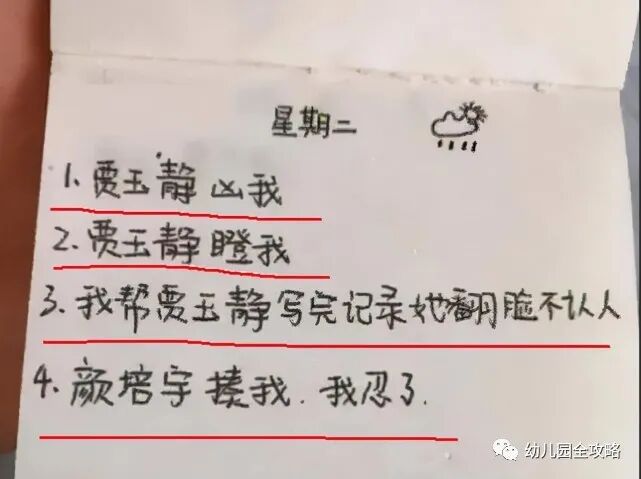 星期二
1.贾玉静凶我
2.贾玉静瞪我
3.我帮贾玉静写完记录她翻脸不认人
4.颜培宇揍我.我忍了.
幼儿园全攻略